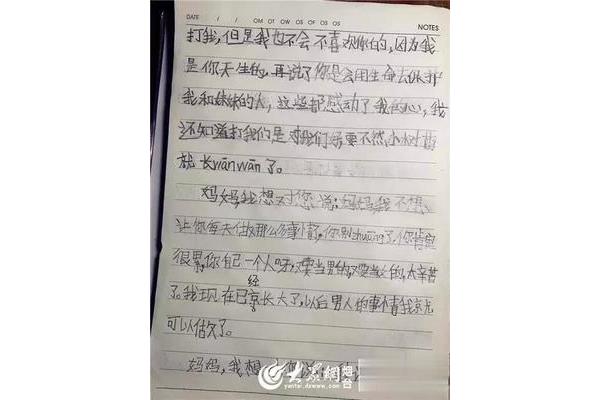 DATE / / OM OT OW OS OF OS OS NOTES
打我,但是我也不会不喜欢你的,因为我
是你天生的,再说了你是会用生命去保护
我和妹妹的人,这些都感动了我的心,我
还知道打我们是对我们好要不然小小时苗
就长wānwān了。
妈妈,我想对您说:妈妈,我不想
让你每天做那么多事情,你别zhuāng了,你肯定
很累,你自己一个人呀,又要当男的,又要当女的,太辛苦
了。我现在已经长大了,以后男人的事情我
可以做了。
妈妈,我想
大众网 烟台
yantai.dzwww.com